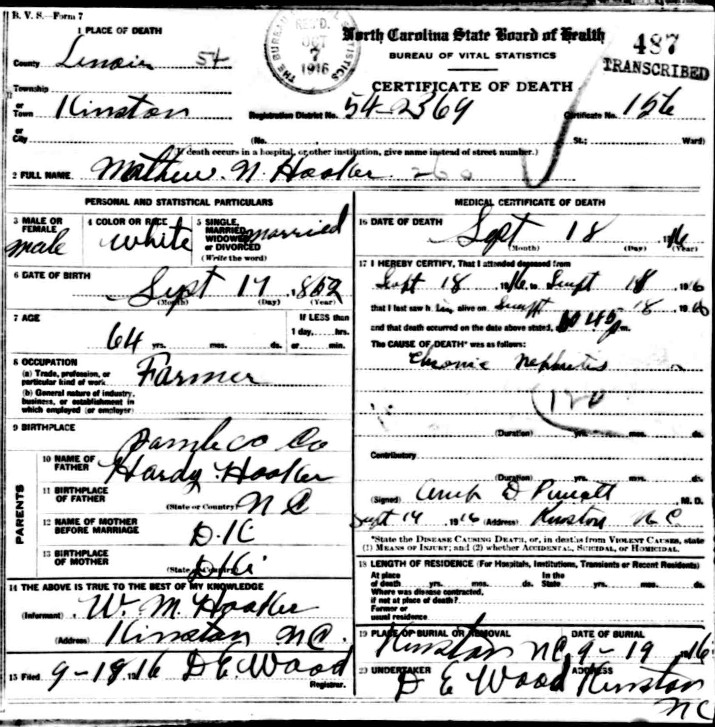 B. V. S.—Form 7
1 PLACE OF DEATH
County Lenoir 54
Township
or
Town Kinston
or
City
THE BUREAU OF VITAL STATISTICS
REC'D.
OCT
7
1916
North Carolina State Board of Health
BUREAU OF VITAL STATISTICS
CERTIFICATE OF DEATH
487
TRANSCRIBED
Registration District No. 54-2369 Certificate No. 156
(No. St.; Ward)
(If death occurs in a hospital, or other institution, give name instead of street number.)
2 FULL NAME Mathew. N. Hooker
PERSONAL AND STATISTICAL PARTICULARS
3 MALE OR FEMALE male
4 COLOR OR RACE white
5 SINGLE, MARRIED WIDOWED or DIVORCED (Write the word) married
6 DATE OF BIRTH
Sept 17 1852
(Month) (Day) (Year)
7 AGE
64 yrs. mos. ds.
If LESS than
1 day, hrs.
or min.
8 OCCUPATION
(a) Trade, profession, or
particular kind of work Farmer
(b) General nature of industry,
business, or establishment in
which employed (or employer)
9 BIRTHPLACE
Pamlico Co
PARENTS
10 NAME OF
FATHER Hardy Hooker
11 BIRTHPLACE
OF FATHER
(State or Country) N C
12 NAME OF MOTHER
BEFORE MARRIAGE D.K
13 BIRTHPLACE
OF MOTHER
(State or Country)
14 THE ABOVE IS TRUE TO THE BEST OF MY KNOWLEDGE
(Informant) W. M. Hooker
(Address) Kinston N.C.
15 Filed 9-18 1916 D E Wood
Registrar.
MEDICAL CERTIFICATE OF DEATH
16 DATE OF DEATH
Sept 18 1916
(Month) (Day) (Year)
17 I HEREBY CERTIFY, That I attended deceased from
Sept 18 1916 to Sept 18 1916
that I last saw him alive on Sept 18 1916
and that death occurred on the date above stated, at 10 40 p m.
The CAUSE OF DEATH* was as follows:
Chronic Nephritis
120
(Duration) yrs. mos. ds.
Contributory
(Duration) yrs. mos. ds.
(Signed) M. D.
Sept 19 1916 (Address) Kinston N C
*State the DISEASE CAUSING DEATH, or, in deaths from VIOLENT CAUSES, state
(1) MEANS OF INJURY; and (2) whether ACCIDENTAL, SUICIDAL, or HOMICIDAL.
18 LENGTH OF RESIDENCE (For Hospitals, Institutions, Transients or Recent Residents)
At place
of death yrs. mos. ds.
In the
State yrs. mos. ds.
Where was disease contracted,
if not at place of death?
Former or
usual residence
19 PLACE OF BURIAL OR REMOVAL DATE OF BURIAL
Kinston NC 9-19 1916
20 UNDERTAKER ADDRESS
D E Wood Kinston
NC